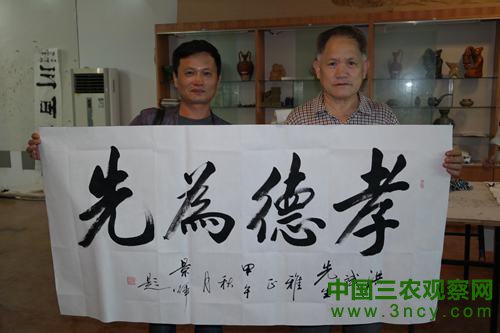 孝德為先
先生
雅正
甲午
秋月
題
中国三农观察网
www.3ncy.com